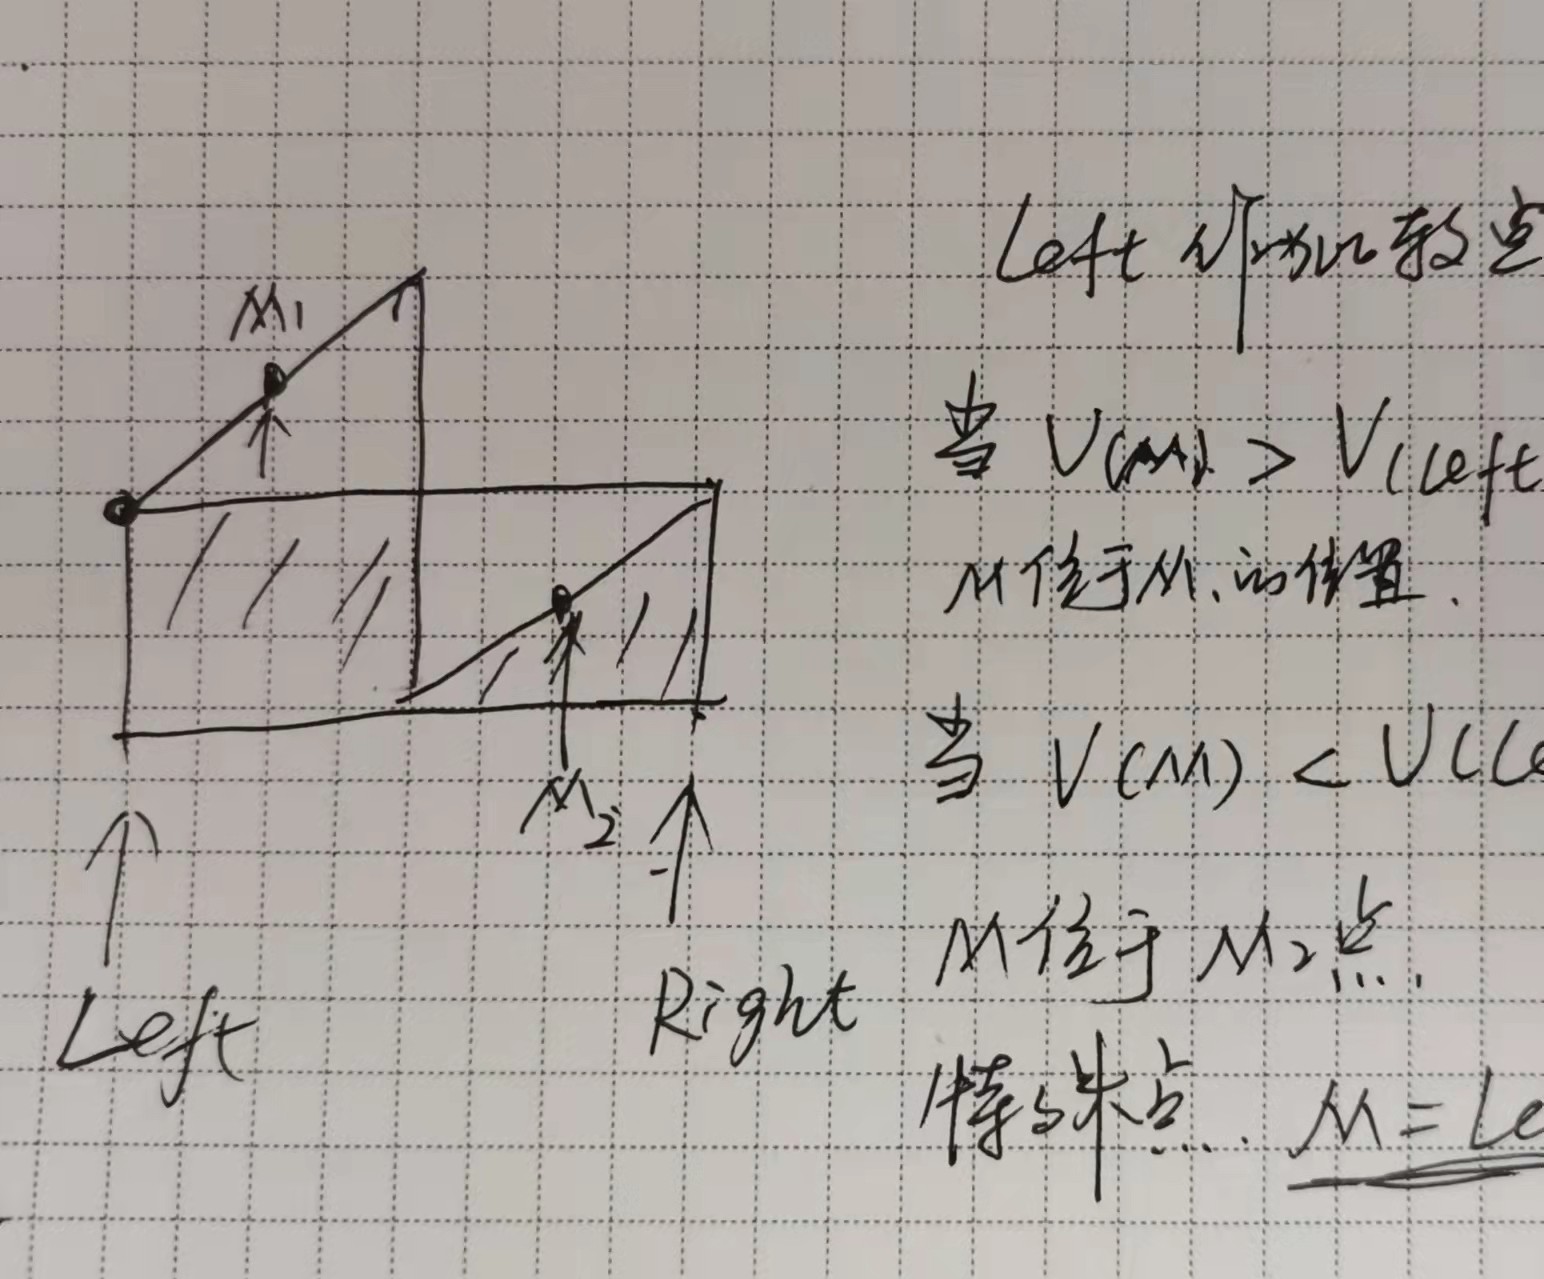 M1
M2
Left
Right
Left 作为比较点
当 V(M1) > V(Left
M位于M1的位置.
当 V(M) < V(Le
M位于 M2点.
特殊点. M = Le